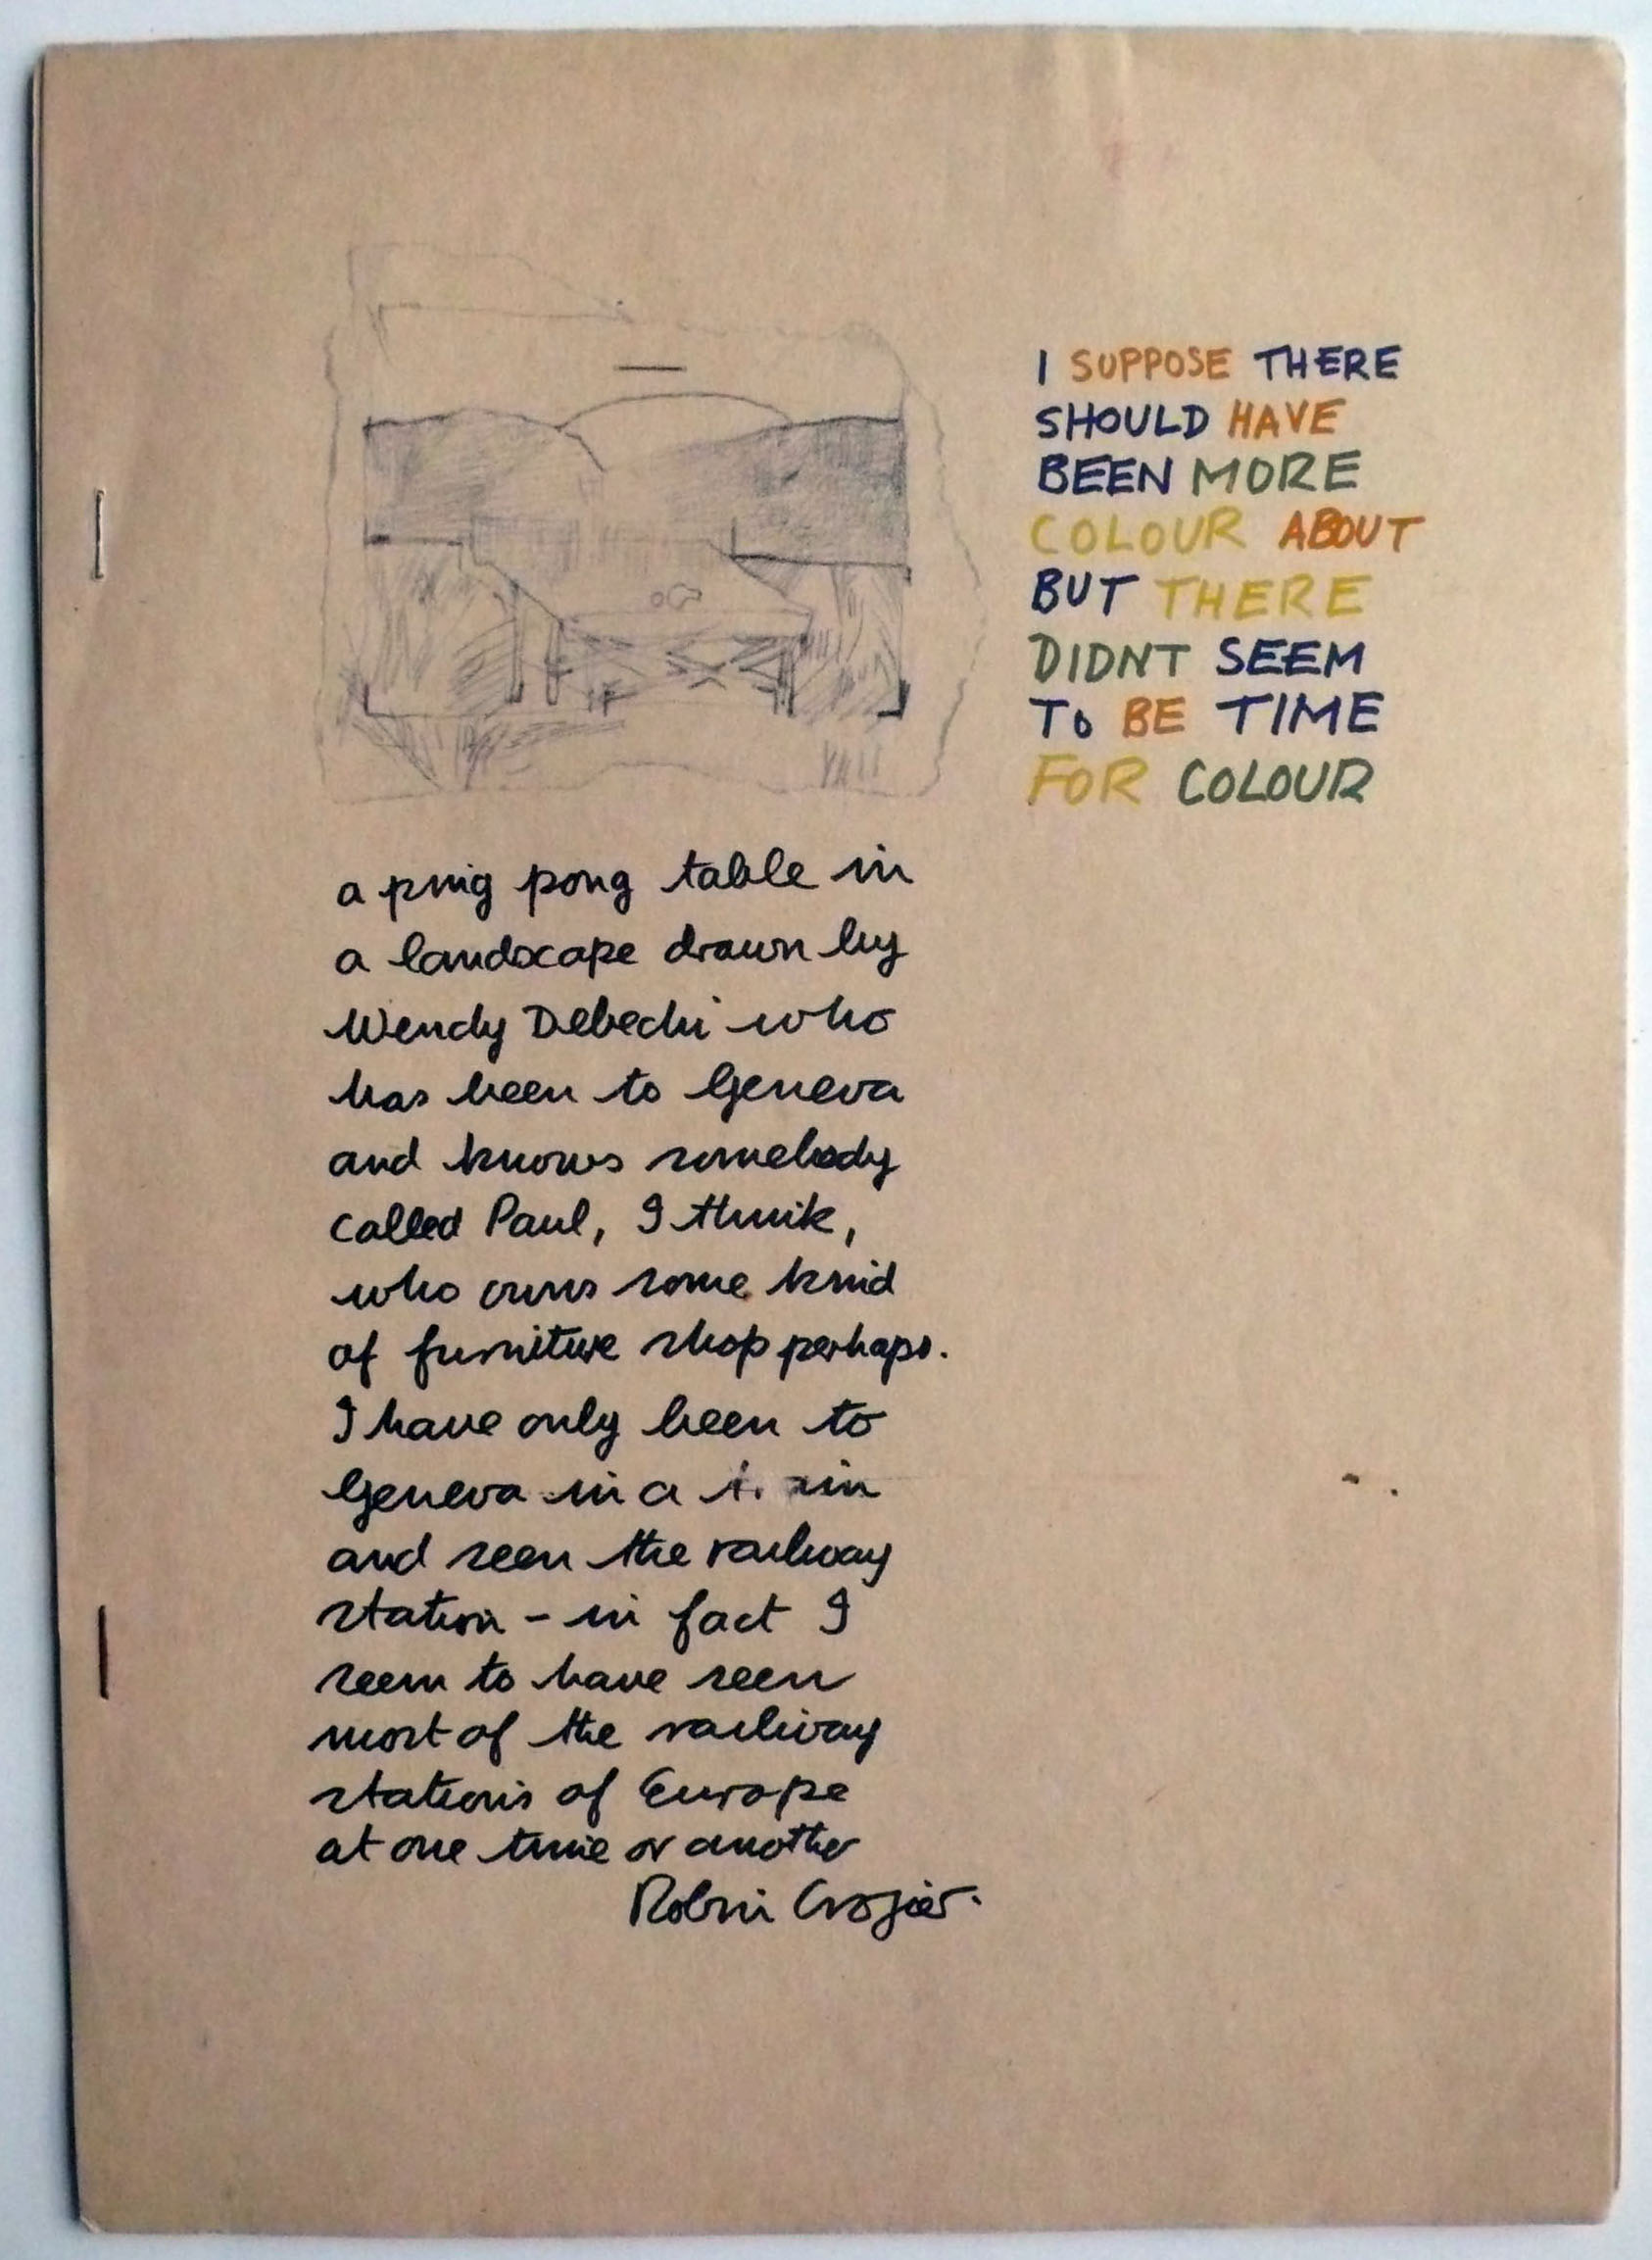 I SUPPOSE THERE
SHOULD HAVE
BEEN MORE
COLOUR ABOUT
BUT THERE
DIDNT SEEM
TO BE TIME
FOR COLOUR
a ping pong table in
a landscape drawn by
Wendy Debechi who
has been to Geneva
and knows somebody
called Paul, I think,
who owns some kind
of furniture shop perhaps.
I have only been to
Geneva in a
and seen the railway
station - in fact I
seem to have seen
most of the railway
stations of Europe
at one time or another
Robin Crozier.